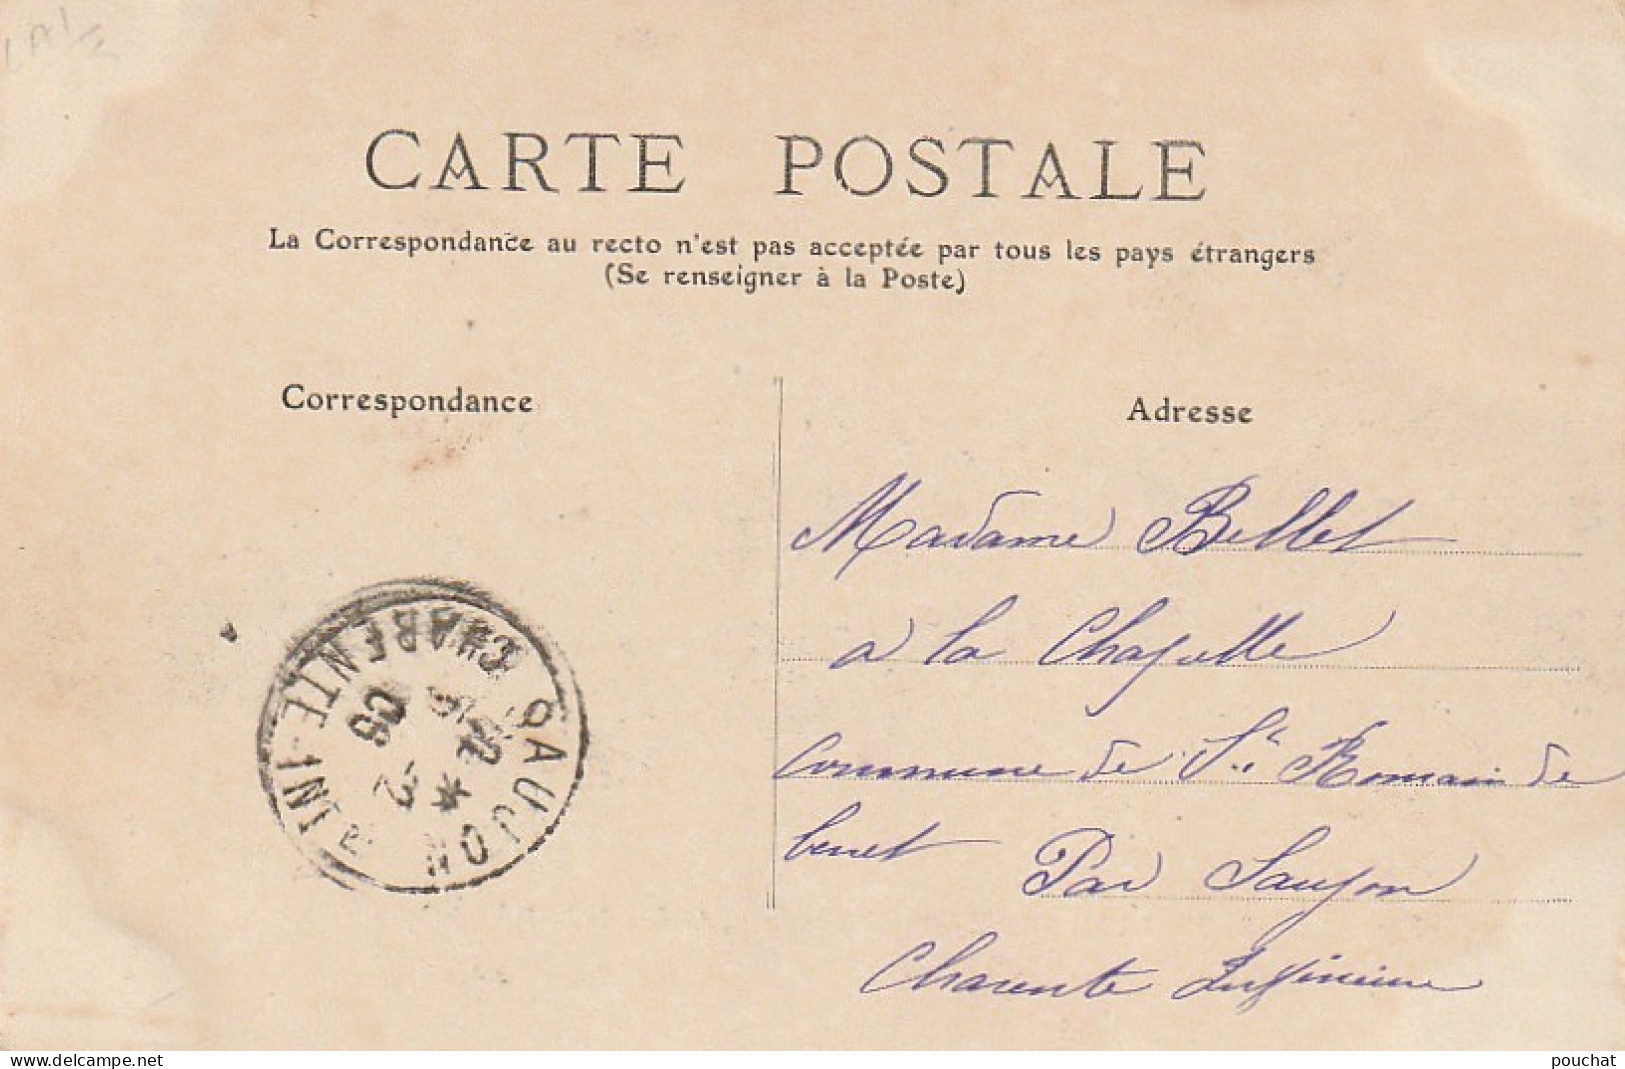 CARTE POSTALE
La Correspondance au recto n'est pas acceptée par tous les pays étrangers
(Se renseigner à la Poste)
Correspondance
Adresse
Madame Bellet
a la Chapelle
Commune de St Romain de
benet
Par Saujon
Charente Inférieure
SAUJON
CHARENTE-INFre
06
www.delcampe.net
pouchat